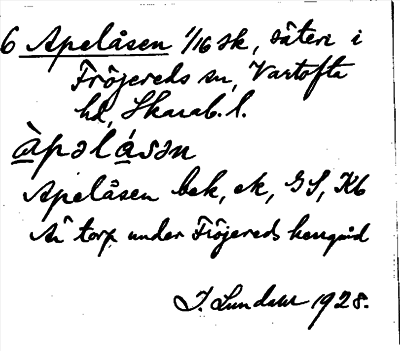 6 Apelåsen 1/16 sk, säteri i
Fröjereds sn, Vartofta
hd, Skarab. l.
àpəlá̊sən
Apelåsen bek, ek, GS, Kb
Är torp under Fröjereds herrgård
I. Lundahl 1928.